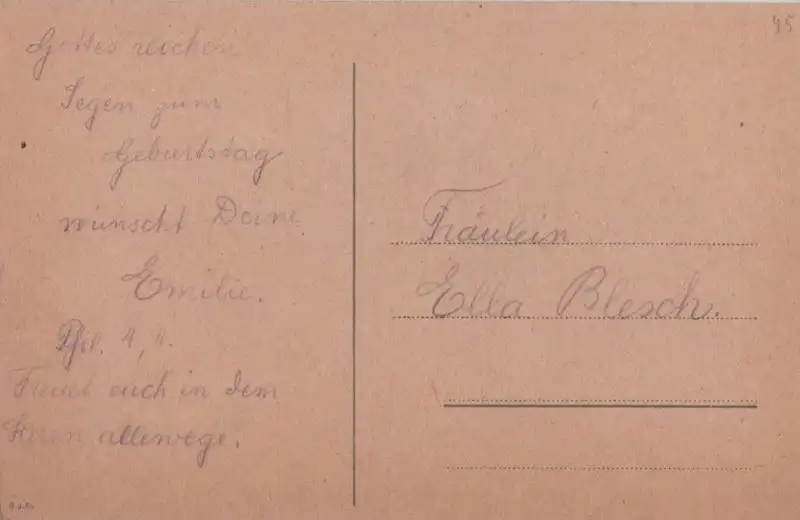 45
Gottes reichen
Segen zum
Geburtstag
wünscht Deine
Emilie.
Phil. 4, 4.
Freuet euch in dem
Herrn allewege.
Fräulein
Ella Blesch.